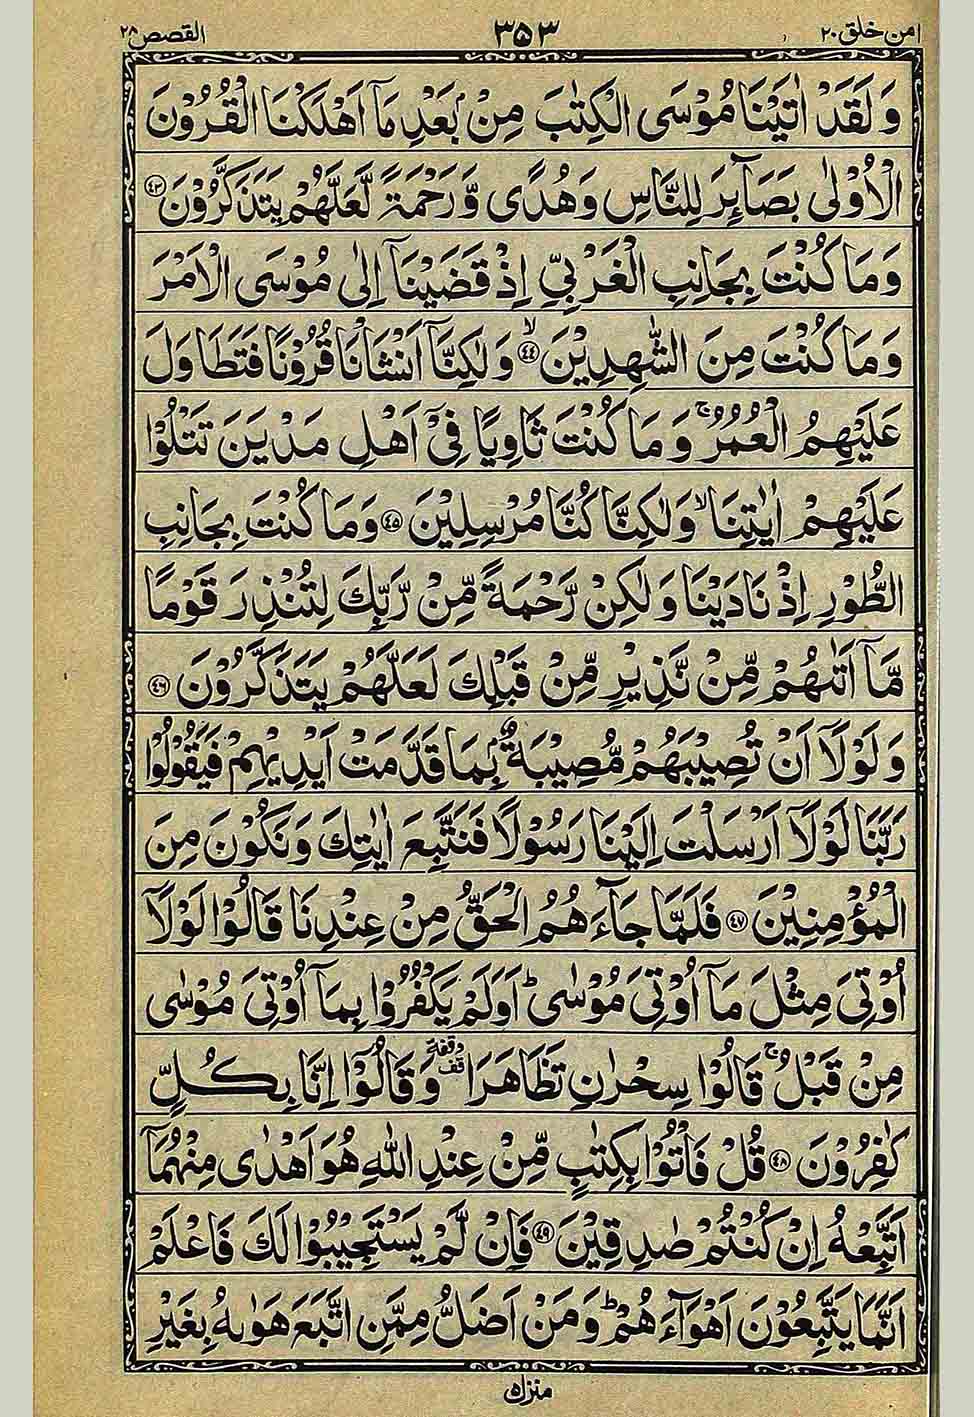 القصص ٢٨ ٣٥٣ امن خلق ٢٠
وَلَقَدْ اٰتَيْنَا مُوْسَى الْكِتٰبَ مِنْۢ بَعْدِ مَاۤ اَهْلَكْنَا الْقُرُوْنَ
الْاُوْلٰى بَصَآئِرَ لِلنَّاسِ وَهُدًى وَّرَحْمَةً لَّعَلَّهُمْ يَتَذَكَّرُوْنَ ۝٤٣
وَمَا كُنْتَ بِجَانِبِ الْغَرْبِيِّ اِذْ قَضَيْنَاۤ اِلٰى مُوْسَى الْاَمْرَ
وَمَا كُنْتَ مِنَ الشّٰهِدِيْنَ ۝٤٤ۙ وَلٰكِنَّاۤ اَنْشَاْنَا قُرُوْنًا فَتَطَاوَلَ
عَلَيْهِمُ الْعُمُرُ ۚ وَمَا كُنْتَ ثَاوِيًا فِيْۤ اَهْلِ مَدْيَنَ تَتْلُوْا
عَلَيْهِمْ اٰيٰتِنَا ۙ وَلٰكِنَّا كُنَّا مُرْسِلِيْنَ ۝٤٥ وَمَا كُنْتَ بِجَانِبِ
الطُّوْرِ اِذْ نَادَيْنَا وَلٰكِنْ رَّحْمَةً مِّنْ رَّبِّكَ لِتُنْذِرَ قَوْمًا
مَّاۤ اَتٰىهُمْ مِّنْ نَّذِيْرٍ مِّنْ قَبْلِكَ لَعَلَّهُمْ يَتَذَكَّرُوْنَ ۝٤٦
وَلَوْلَاۤ اَنْ تُصِيْبَهُمْ مُّصِيْبَةٌۢ بِمَا قَدَّمَتْ اَيْدِيْهِمْ فَيَقُوْلُوْا
رَبَّنَا لَوْلَاۤ اَرْسَلْتَ اِلَيْنَا رَسُوْلًا فَنَتَّبِعَ اٰيٰتِكَ وَنَكُوْنَ مِنَ
الْمُؤْمِنِيْنَ ۝٤٧ فَلَمَّا جَآءَهُمُ الْحَقُّ مِنْ عِنْدِنَا قَالُوْا لَوْلَاۤ
اُوْتِيَ مِثْلَ مَاۤ اُوْتِيَ مُوْسٰى ؕ اَوَلَمْ يَكْفُرُوْا بِمَاۤ اُوْتِيَ مُوْسٰى
مِنْ قَبْلُ ۚ قَالُوْا سِحْرٰنِ تَظَاهَرَا وقفة قف وَقَالُوْۤا اِنَّا بِكُلٍّ
كٰفِرُوْنَ ۝٤٨ قُلْ فَاْتُوْا بِكِتٰبٍ مِّنْ عِنْدِ اللّٰهِ هُوَ اَهْدٰى مِنْهُمَاۤ
اَتَّبِعْهُ اِنْ كُنْتُمْ صٰدِقِيْنَ ۝٤٩ فَاِنْ لَّمْ يَسْتَجِيْبُوْا لَكَ فَاعْلَمْ
اَنَّمَا يَتَّبِعُوْنَ اَهْوَآءَهُمْ ؕ وَمَنْ اَضَلُّ مِمَّنِ اتَّبَعَ هَوٰىهُ بِغَيْرِ
منزل ٥